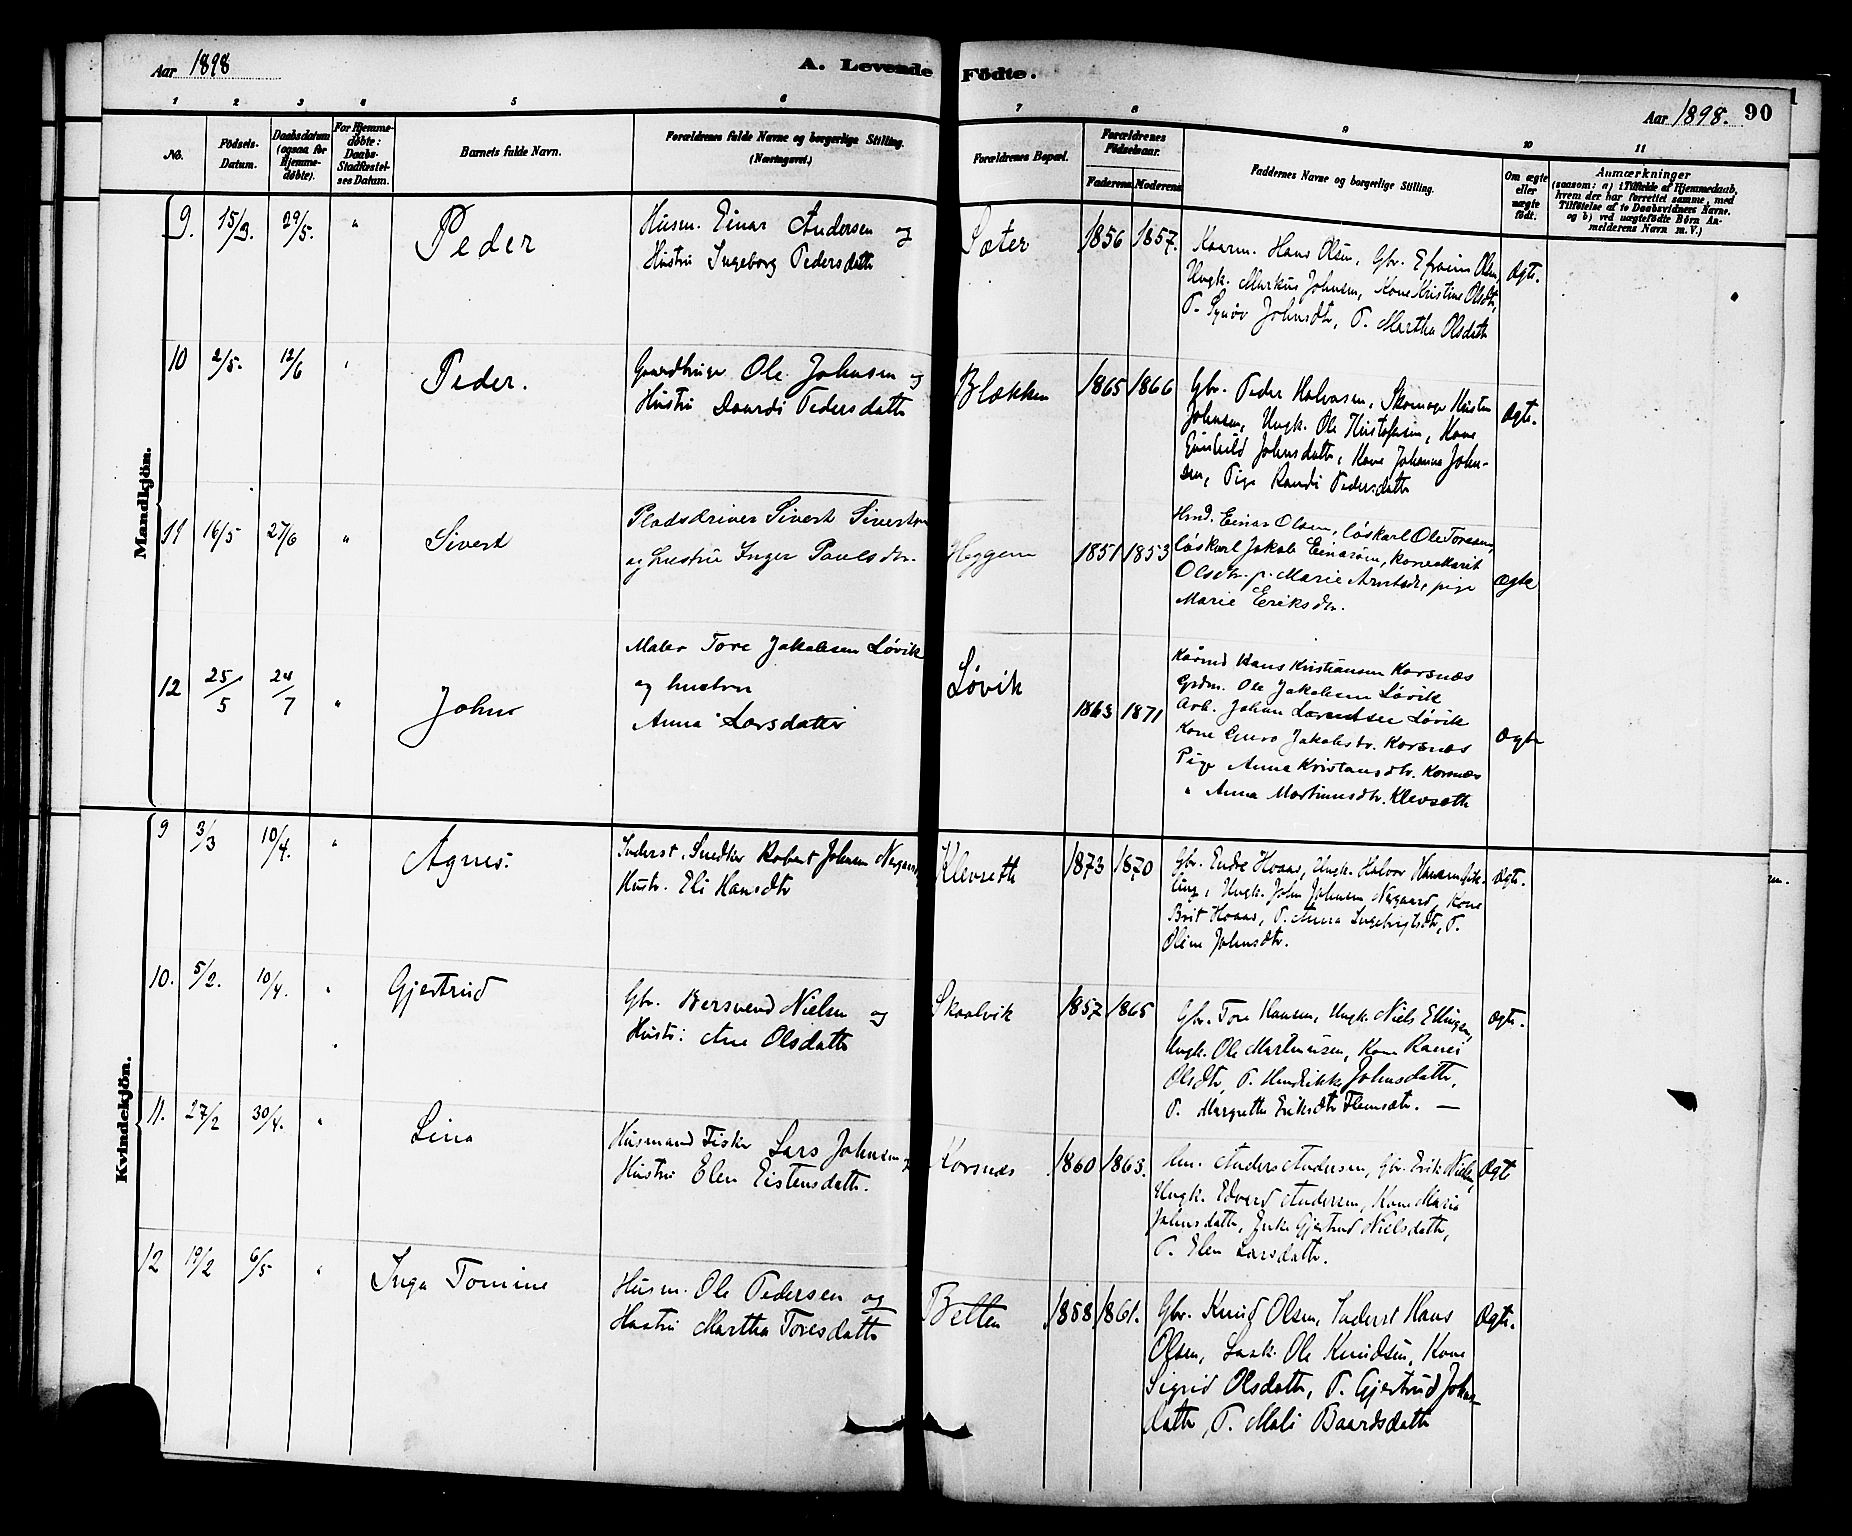 Aar 1898
A. Levende Födte.
Aar 1898. 90
1 2 3 4 5 6 7 8 9 10 11
No.
Födsels-
Datum.
Daabsdatum
(ogsaa for
Hjemme-
døbte).
For Hjemme-
døbte:
Daabs-
Stadfæstel-
ses Datum.
Barnets fulde Navn.
Forældrenes fulde Navne og borgerlige Stilling.
(Næringsvei.)
Forældrenes Bopæl.
Forældrenes
Födselsaar.
Faderens Moderens
Faddernes Navne og borgerlige Stilling.
Om ægte
eller
uægte
født.
Anmærkninger
(saasom: a) i Tilfælde af Hjemmedaab,
hvem der har forrettet samme, med
Tilføielse af to Daabsvidners Navne.
og b) ved uægtefødte Børn An-
melderens Navn m. V.)
Mandkjön.
9. 15/3. 29/5. " Peder
Husm. Einar Andersen og
Hustru Ingeborg Pedersdatter
Sæter 1856 1857.
Kaarm. Hans Olsen, Gbr. Efraim Olsen,
Ungk. Markus Johnsen, Kone Kristine Olsdtr,
P. Synøv Johnsdtr, P. Martha Olsdatter
Ægte.
10 2/5. 12/6 " Peder.
Gaardbruger Ole Johnsen og
Hustru Baardi Pedersdatter
Blækken 1865 1866
Gbr. Peder Halvorsen, Skomager Kristen
Johnsen, Ungk. Ole Kristofersen, Kone
Gunhild Johnsdatter, Kone Johanna John-
sen, Pige Randi Pedersdatter
Ægte.
11 16/5 27/6 " Sivert
Pladsskriver Sivert Sivertsen
og hustru Inger Paulsdtr.
Heggem 1851 1853
Hmd. Einar Olsen, løskarl Ole Toresen,
løskarl Jakob Einarsen, kone Marit
Olsdtr. p. Marie Arntsdtr, pige
Marie Eriksdtr.
Ægte
12 25/5 24/7 " John
Maler Tore Jakobsen Løvik
og hustru
Anna Larsdatter
Løvik 1863 1871
Kårmd Hans Kristiansen Korsnæs
Grdm. Ole Jakobsen Løvik
Arb. Johan Larentsen Løvik
Kone Guro Jakobsdtr. Korsnæs
Pige Anna Kristansdtr. Korsnæs
" Anna Martinusdtr. Klevsæth
Ægte
Kvindekjön.
9 3/3 10/4. " Agnes.
Inderst, Snedker Robert Johnsen Nergaard,
Hustr. Eli Hansdtr
Klevseth 1873 1870
Gbr. Endre Hoaas, Ungk. Halvor Hansen
Ungk. John Johnsen Nergaard, Kone
Brit Hoaas, P. Anna Ingebrigtsdtr, P.
Oline Johnsdtr.
Ægte.
10. 5/2. 10/4. " Gjertrud
Gbr. Bersvend Nielsen og
Hustru: Ane Olsdatter
Skaalvik 1857 1865
Gbr. Tore Hansen, Ungk. Niels Ellingsen,
Ungk. Ole Martinusen, Kone Ranei
Olsdtr, P. Hendrikke Johnsdatter,
P. Margrethe Eriksdtr Flemsætr. —
Ægte.
11. 27/2 30/4. " Lina
Husmand Fisker Lars Johnsen og
Hustru Elen Eistensdatter.
Korsnæs 1860 1863.
Hm. Anders Andersen, Gbr. Erik Nielsen,
Ungk. Edvard Andersen, Kone Maria
Johnsdatter, Enke Gjertrud Nielsdatter,
P. Elen Larsdatter.
Ægte
12 19/2 6/5 " Inga Tomine
Husm. Ole Pedersen og
Hustru Martha Toresdatter
Betten 1858 1861.
Gbr. Knud Olsen, Inderst Hans
Olsen, Ungk. Ole Knudsen, Kone
Sigrid Olsdatter, P. Gjertrud Johns-
datter, P. Mali Baardsdatter
Ægte.